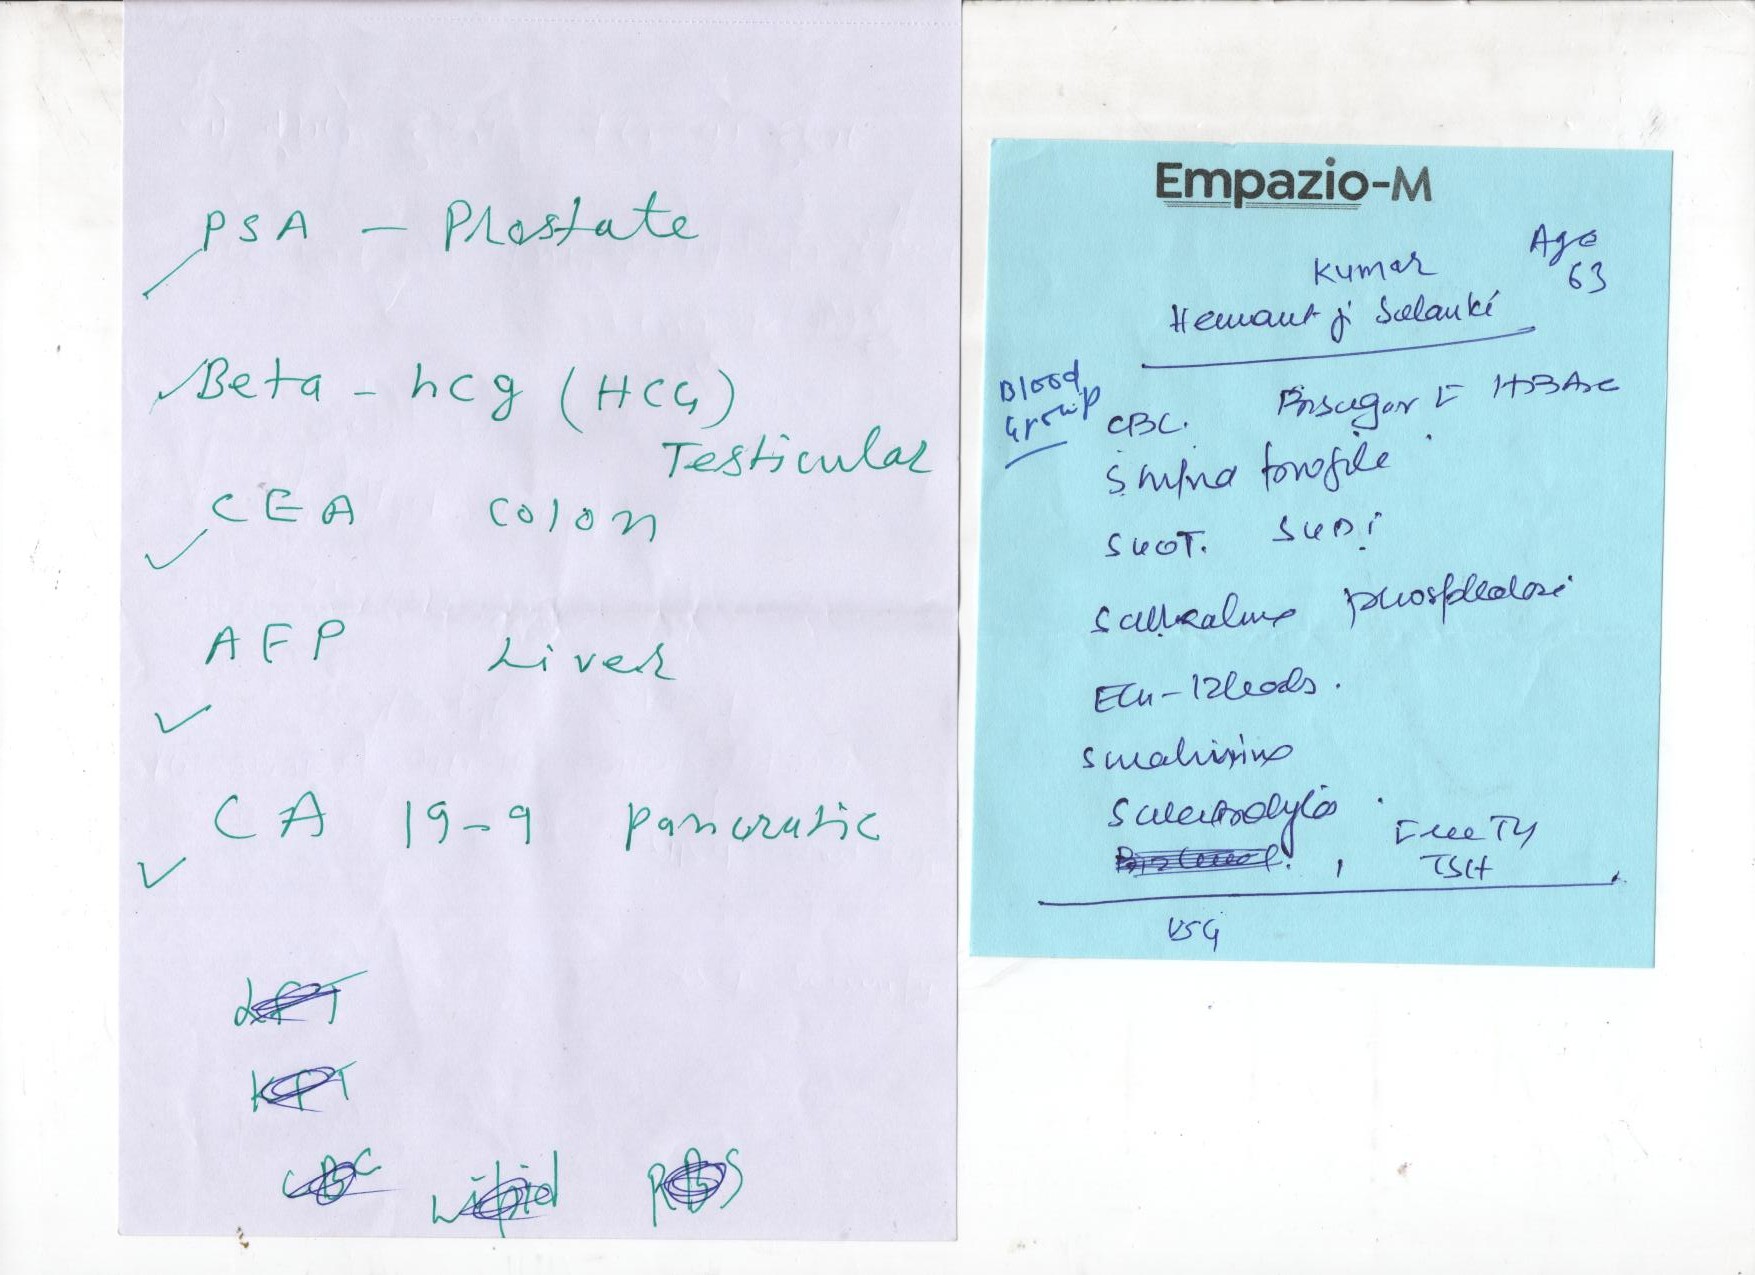 PSA - Prostate
Beta - hcg (HCG)
Testicular
CEA colon
AFP Liver
CA 19-9 pancratic
LFT
KFT
CBC Lipid RBS
Empazio-M
Age
63
Kumar
Hemant ji Solanki
Blood
Group
CBC. HBA1c
SGOT.
phosphatase
ECG - 12 leads.
S electrolytes
Free T4
TSH
USG